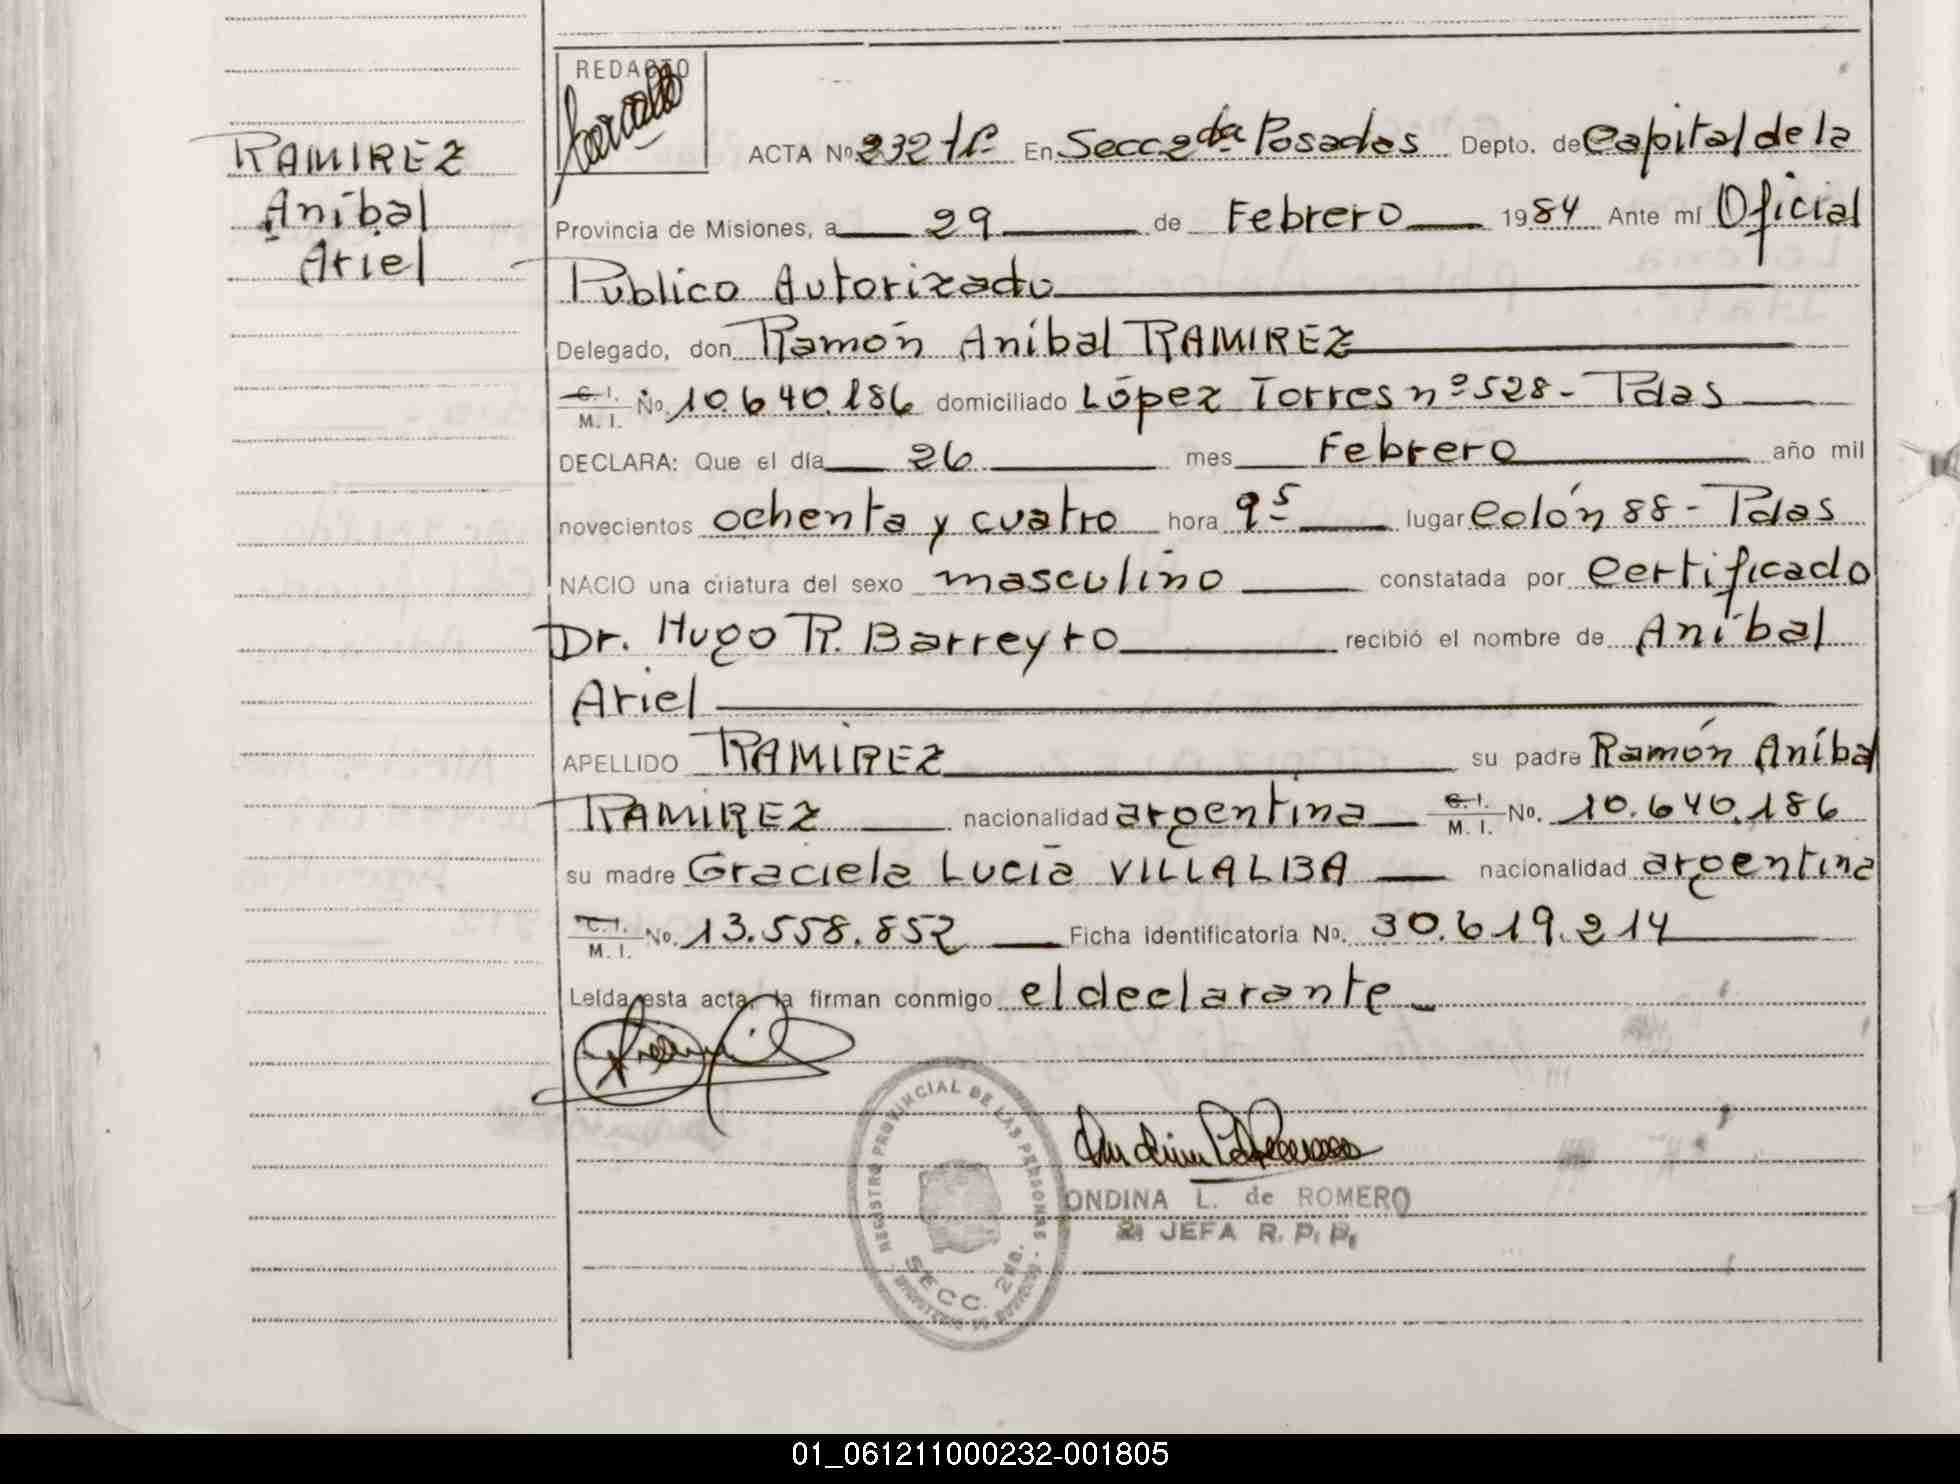 RAMIREZ
Aníbal
Ariel
REDACTO
ACTA Nº 232 tº En Secc 2da Posadas Depto. de Capital de la
Provincia de Misiones, a 29 de Febrero 1984 Ante mí Oficial
Público Autorizado
Delegado, don Ramón Aníbal RAMIREZ
C. I. M. I. No. 10.640.186 domiciliado López Torres nº 528 - Pdas
DECLARA: Que el día 26 mes Febrero año mil
novecientos ochenta y cuatro hora 9 5 lugar Colón 88 - Pdas
NACIO una criatura del sexo masculino constatada por Certificado
Dr. Hugo R. Barreyro recibió el nombre de Aníbal
Ariel
APELLIDO RAMIREZ su padre Ramón Aníbal
RAMIREZ nacionalidad argentina C. I. M. I. No. 10.640.186
su madre Graciela Lucía VILLALBA nacionalidad argentina
C. I. M. I. No. 13.558.852 Ficha identificatoria No. 30.619.214
Leída esta acta, la firman conmigo el declarante
REGISTRO PROVINCIAL DE LAS PERSONAS
SECC. 2da.
ONDINA L. de ROMERO
JEFA R. P. P.
01_061211000232-001805